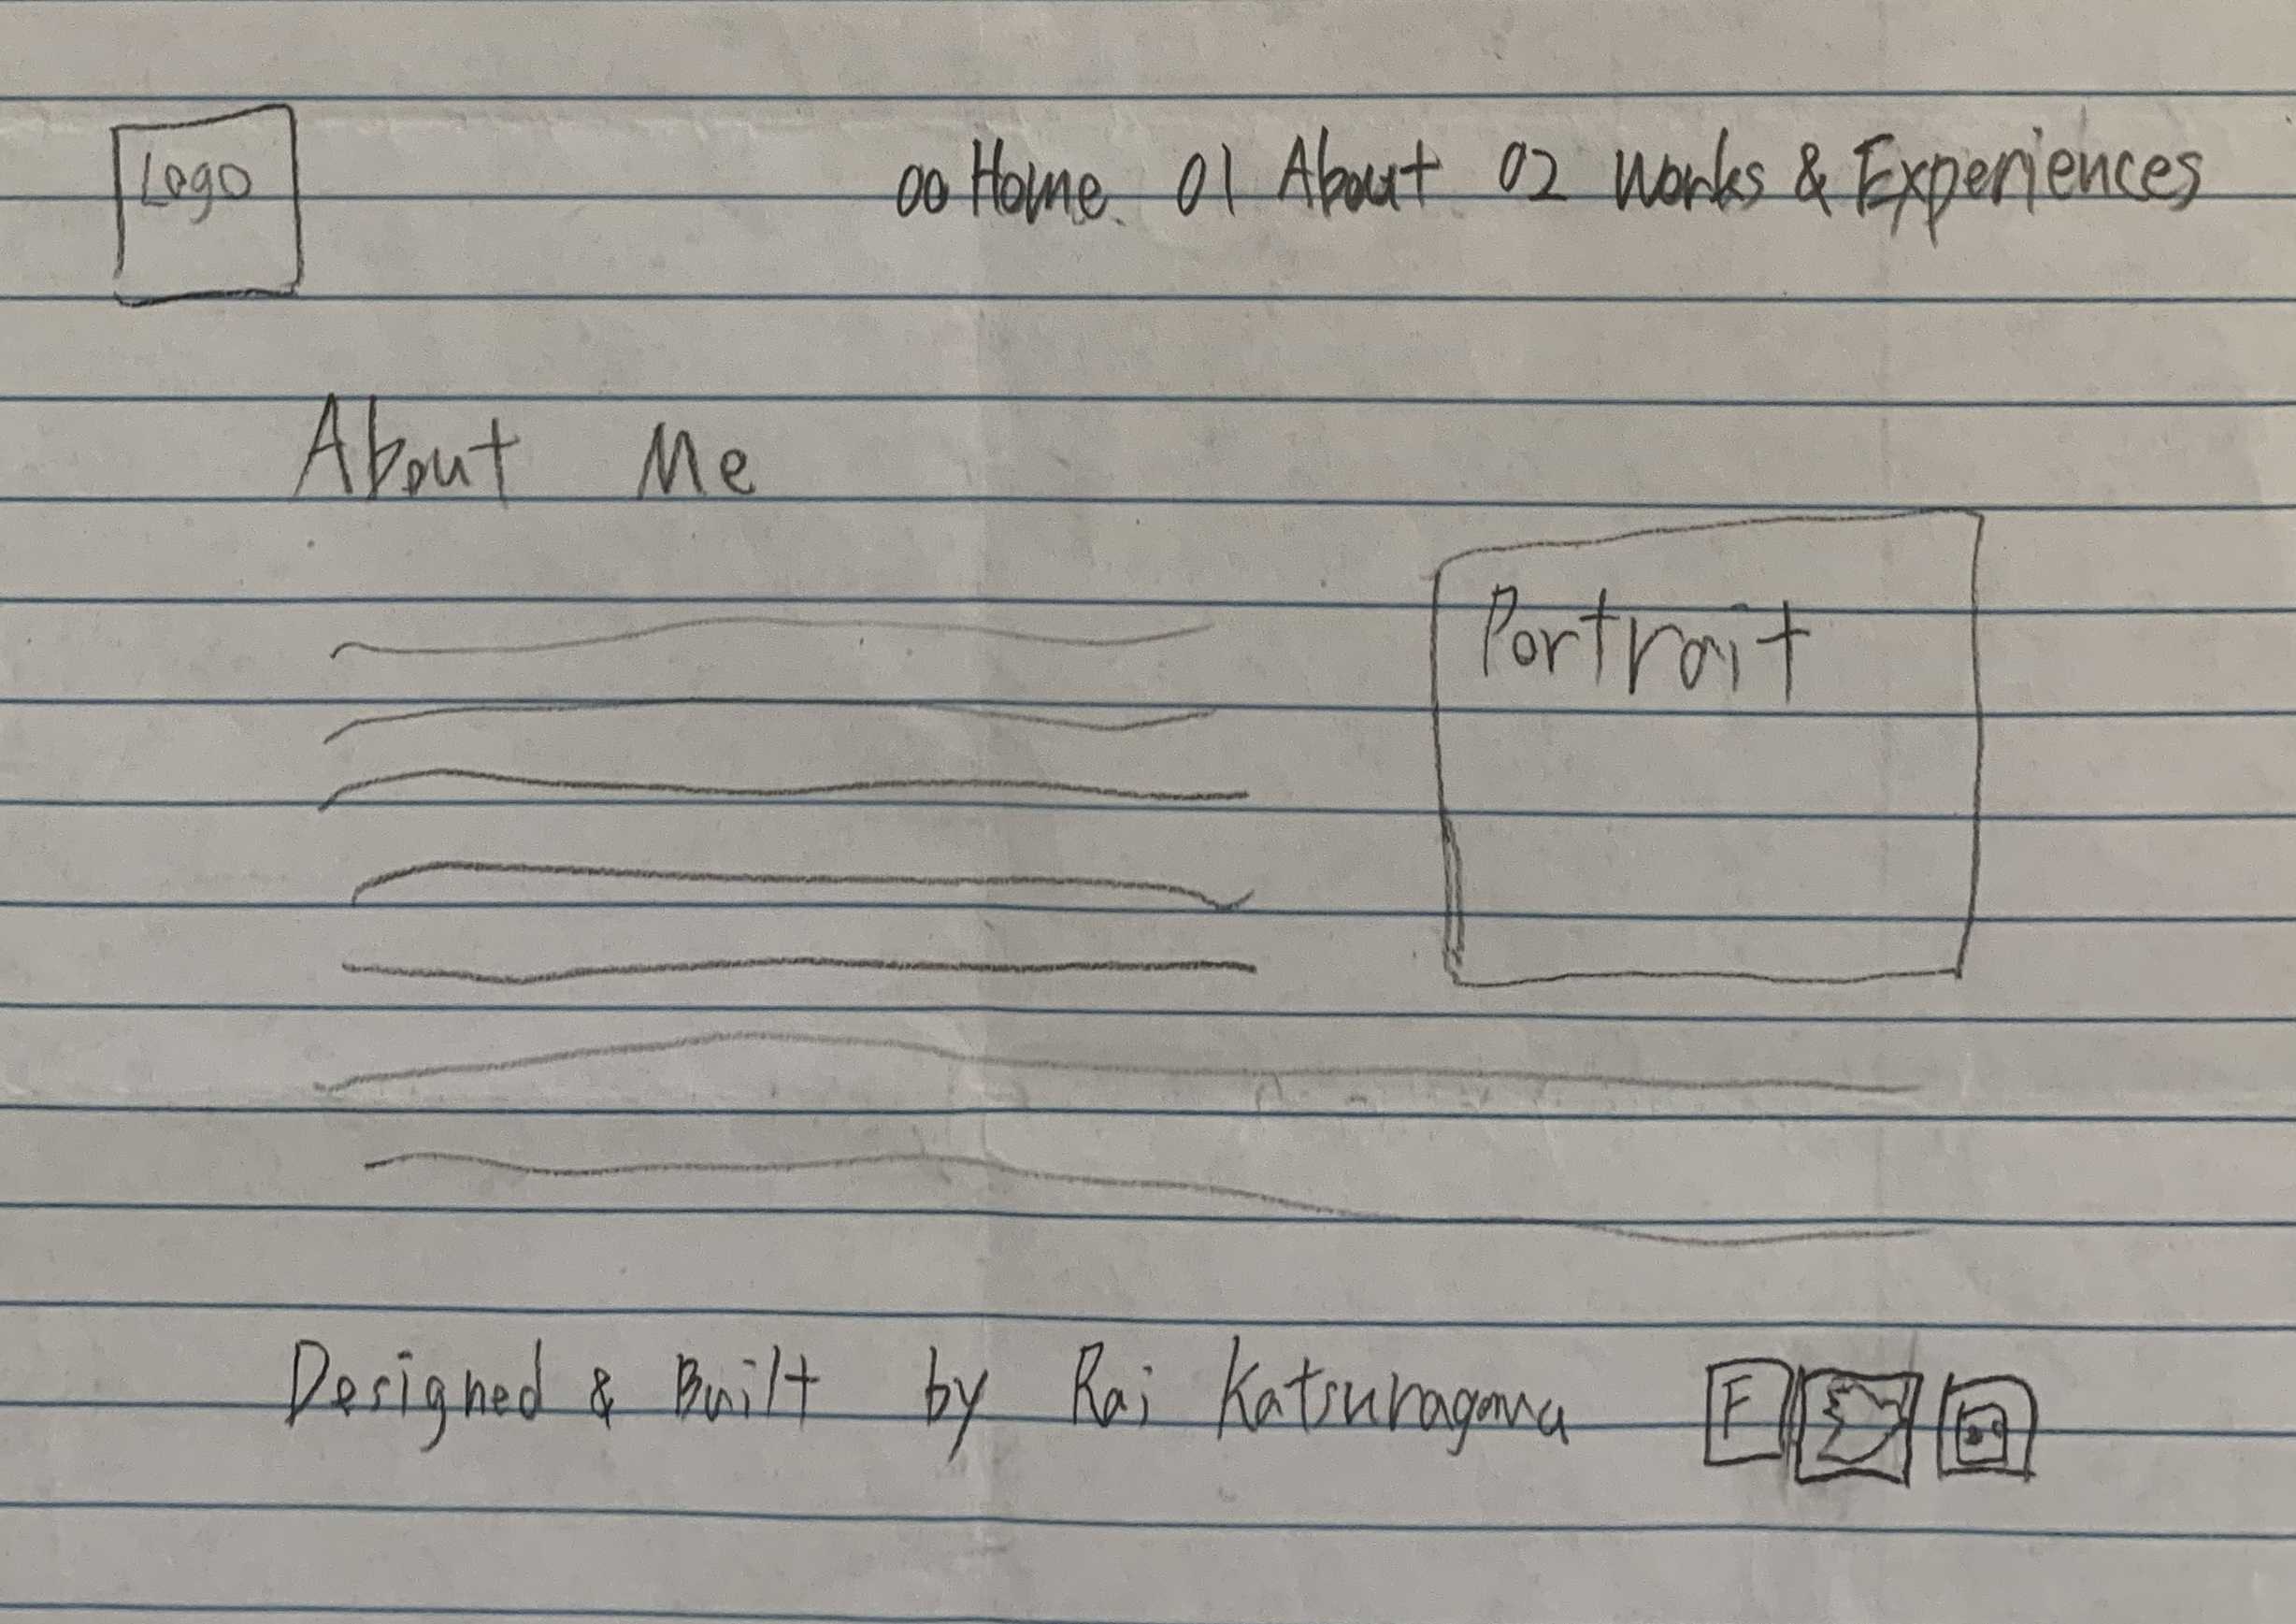 Logo
00 Home 01 About 02 Works & Experiences
About Me
Portrait
Designed & Built by Rai Katsuragawa
F